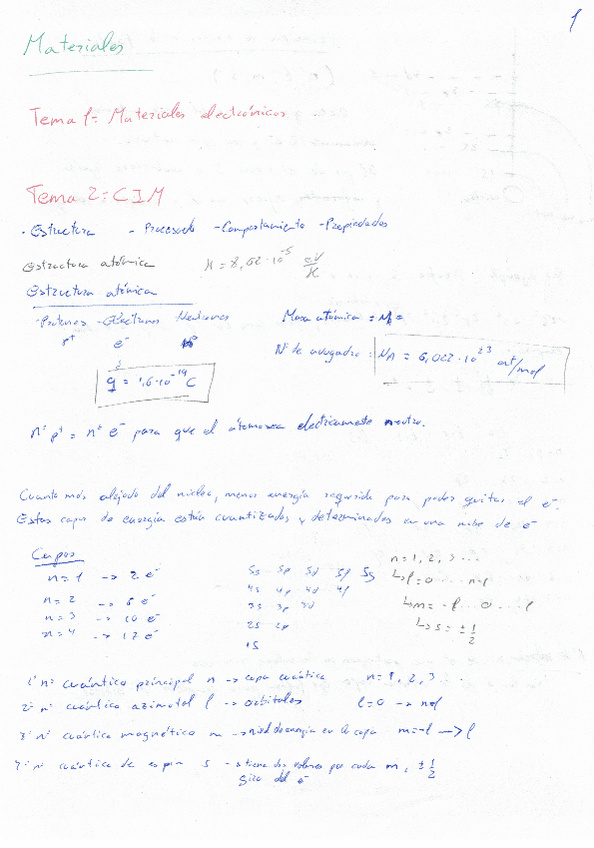 1
Materiales
Tema 1: Materiales electrónicos
Tema 2: CIM
· Estructura - Procesado - Comportamiento - Propiedades
Estructura atómica K = 8,62·10⁻⁵ eV/K
Estructura atómica
- Protones - Electrones Neutrones Masa atómica = M_A =
p⁺ e⁻ n⁰ Nº de avogadro: N_A = 6,022·10²³ at/mol
q = 1,6·10⁻¹⁹ C
nº p⁺ = nº e⁻ para que el átomo sea electricamente neutro.
Cuanto más alejado del núcleo, menos energía requerida para poder quitar el e⁻.
Estas capas de energía están cuantizadas y determinados en una nube de e⁻
Capas
n=1 -> 2 e⁻
n=2 -> 6 e⁻
n=3 -> 10 e⁻
n=4 -> 12 e⁻
5s 5p 5d 5f 5g
4s 4p 4d 4f
3s 3p 3d
2s 2p
1s
n = 1, 2, 3 ...
↳ l = 0 ... n-1
↳ m = -l ... 0 ... l
↳ s = ± 1/2
1º nº cuántico principal n -> capa cuántica n = 1, 2, 3 ...
2º nº cuántico azimutal l -> orbitales l = 0 -> n-1
3º Nº cuántico magnético m -> nivel de energía en la capa m = -l -> l
4º nº cuántico de espin s -> tiene dos valores por cada m, ± 1/2
giro del e⁻